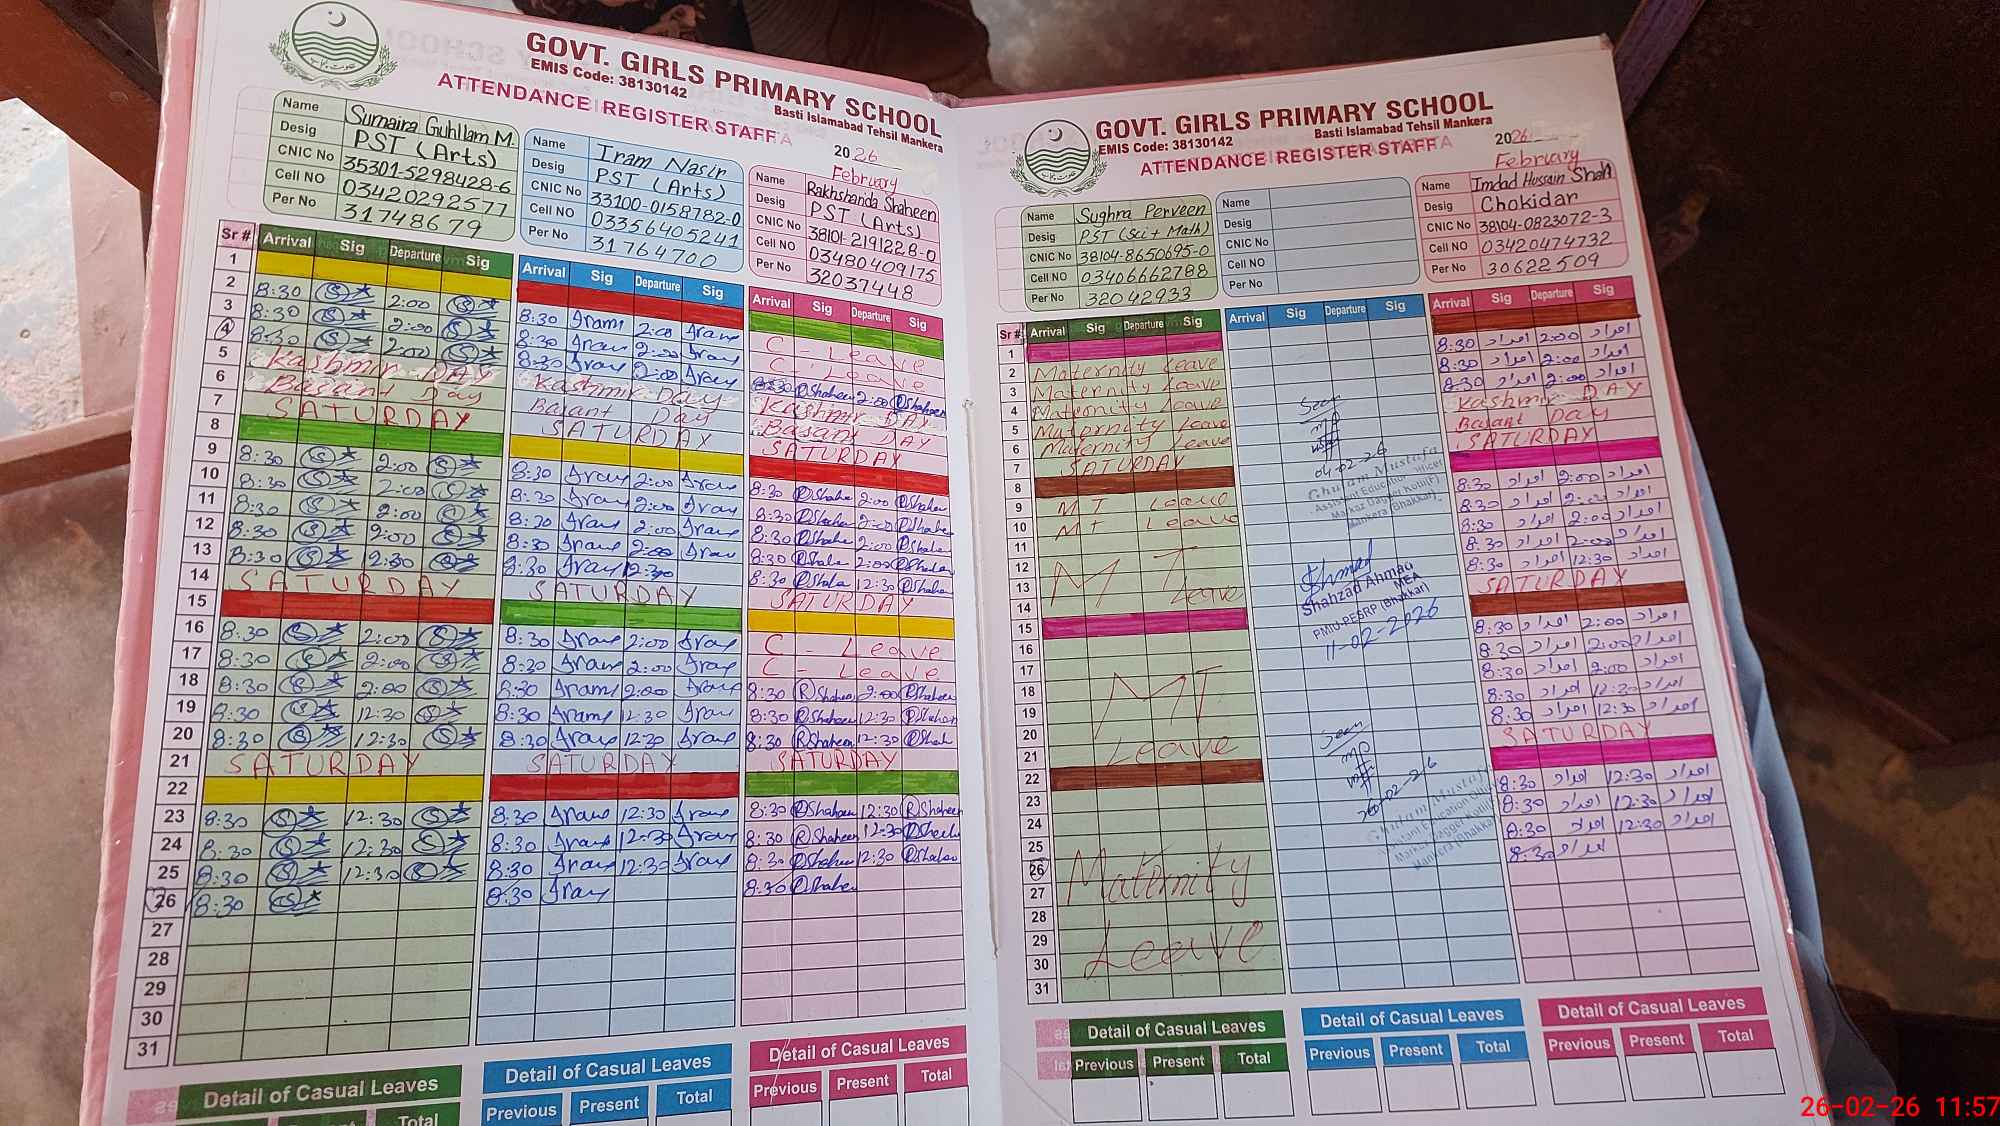 GOVT. GIRLS PRIMARY SCHOOL
EMIS Code: 38130142
Basti Islamabad Tehsil Mankera
ATTENDANCE REGISTER STAFF
2026
February
Name Sumaira Guhllam M.
Desig PST (Arts)
CNIC No 35301-5298428-6
Cell NO 03420292577
Per No 31748679
Name Iram Nasir
Desig PST (Arts)
CNIC No 33100-0158782-0
Cell NO 03356405241
Per No 31764700
Name Rakhshanda Shaheen
Desig PST (Arts)
CNIC No 38101-2191228-0
Cell NO 03480409175
Per No 32037448
Sr # Arrival Sig Departure Sig Arrival Sig Departure Sig Arrival Sig Departure Sig
1
2 8:30 2:00 8:30 2:00 C - Leave
3 8:30 2:00 8:30 2:00 C - Leave
4 8:30 2:00 8:30 2:00 8:30 Shaheen 2:00 Shaheen
5 Kashmir DAY Kashmir Day Kashmir DAY
6 Basant Day Basant Day Basant DAY
7 SATURDAY SATURDAY SATURDAY
8
9 8:30 2:00 8:30 2:00 8:30 2:00
10 8:30 2:00 8:30 2:00 8:30 2:00
11 8:30 2:00 8:30 2:00 8:30 2:00
12 8:30 2:00 8:30 2:00 8:30 2:00
13 8:30 2:30 8:30 12:30 8:30 12:30
14 SATURDAY SATURDAY SATURDAY
15
16 8:30 2:00 8:30 2:00 C - Leave
17 8:30 2:00 8:30 2:00 C - Leave
18 8:30 2:00 8:30 2:00 8:30 R Shaheen 2:00
19 8:30 12:30 8:30 12:30 8:30 R Shaheen 12:30
20 8:30 12:30 8:30 12:30 8:30 R Shaheen 12:30
21 SATURDAY SATURDAY SATURDAY
22
23 8:30 12:30 8:30 12:30 8:30 R Shaheen 12:30 R Shaheen
24 8:30 12:30 8:30 12:30 8:30 R Shaheen 12:30
25 8:30 12:30 8:30 12:30 8:30 12:30
26 8:30 8:30 8:30
27
28
29
30
31
Detail of Casual Leaves Detail of Casual Leaves Detail of Casual Leaves
Total Previous Present Total Previous Present Total
GOVT. GIRLS PRIMARY SCHOOL
EMIS Code: 38130142
Basti Islamabad Tehsil Mankera
ATTENDANCE REGISTER STAFF
2026
February
Name Sughra Perveen
Desig PST (Sci + Math)
CNIC No 38104-8650695-0
Cell NO 03406662788
Per No 32042933
Name
Desig
CNIC No
Cell NO
Per No
Name Imdad Hussain Shah
Desig Chokidar
CNIC No 38104-0823072-3
Cell NO 03420474732
Per No 30622509
Sr # Arrival Sig Departure Sig Arrival Sig Departure Sig Arrival Sig Departure Sig
1
2 Maternity Leave 8:30 امداد 2:00 امداد
3 Maternity Leave 8:30 امداد 2:00 امداد
4 Maternity Leave 8:30 امداد 2:00 امداد
5 Maternity Leave Kashmir DAY
6 Maternity Leave Basant Day
7 SATURDAY SATURDAY
8
9 MT Leave 8:30 امداد 2:00 امداد
10 MT Leave 8:30 امداد 2:00 امداد
11 8:30 امداد 2:00 امداد
12 MT 8:30 امداد 2:00 امداد
13 Leave 8:30 امداد 12:30 امداد
14 SATURDAY
15
16 8:30 امداد 2:00 امداد
17 8:30 امداد 2:00 امداد
18 MT 8:30 امداد 2:00 امداد
19 8:30 امداد 12:30 امداد
20 8:30 امداد 12:30 امداد
21 Leave SATURDAY
22
23 8:30 امداد 12:30 امداد
24 8:30 امداد 12:30 امداد
25 8:30 امداد 12:30 امداد
26 Maternity 8:30 امداد
27
28
29 Leave
30
31
Seen
04-02-26
Ghulam Mustafa
Assistant Education Officer
Mankera (Bhakkar)
Shahzad Ahmad
MEA
PMIU-PESRP (Bhakkar)
11-02-2026
Seen
26-02-26
Ghulam Mustafa
Assistant Education Officer
Mankera (Bhakkar)
Detail of Casual Leaves Detail of Casual Leaves Detail of Casual Leaves
Previous Present Total Previous Present Total Previous Present Total
26-02-26 11:57